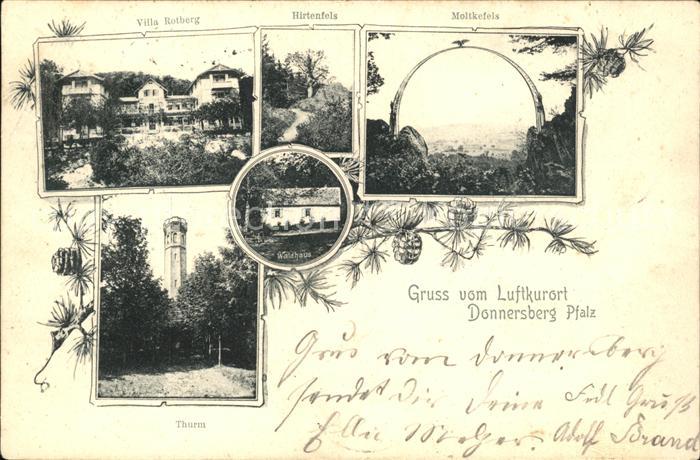 Villa Rotberg
Hirtenfels
Moltkefels
Waldhaus
Thurm
Gruss vom Luftkurort
Donnersberg Pfalz
Gruß vom Donnersberg
sendet Dir Deine Frdl Gruß
Ellie Melzer. Adolf Brand